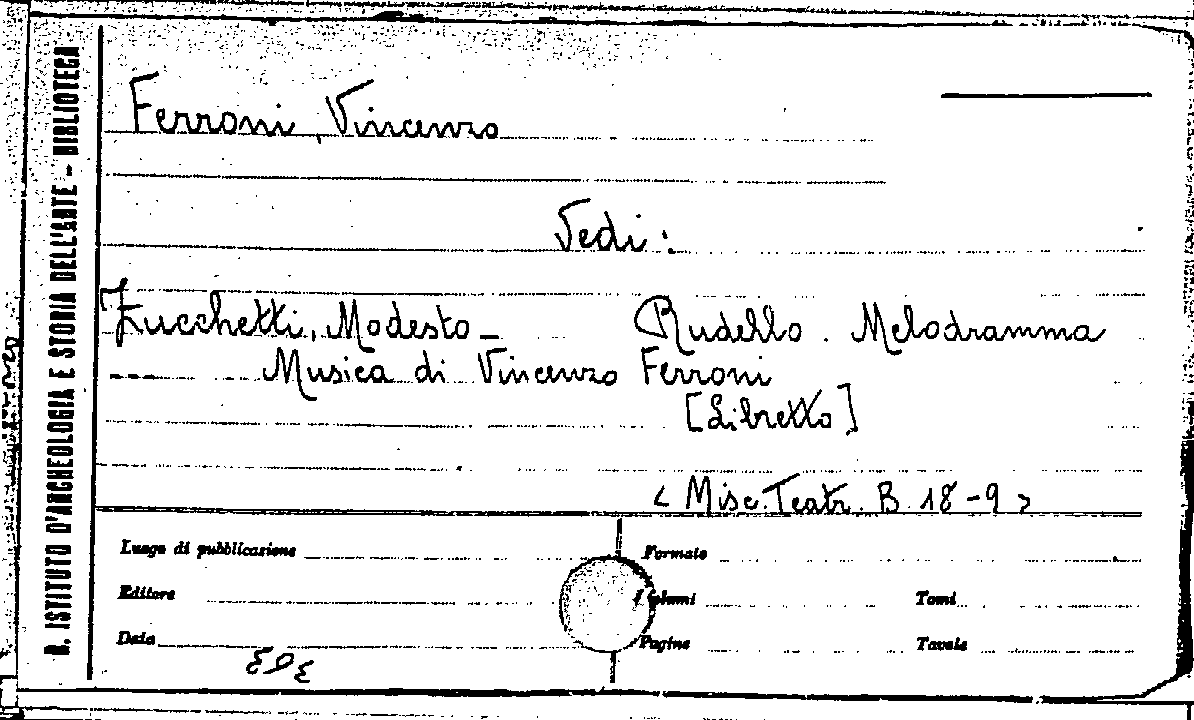 R. ISTITUTO D'ARCHEOLOGIA E STORIA DELL'ARTE - BIBLIOTECA
Ferroni, Vincenzo
Vedi:
Zucchetti, Modesto - Rudello. Melodramma
Musica di Vincenzo Ferroni
[Libretto]
< Misc. Teatr. B 18-9 >
Luogo di pubblicazione Formato
Editore Volumi Tomi
Data Pagine Tavole